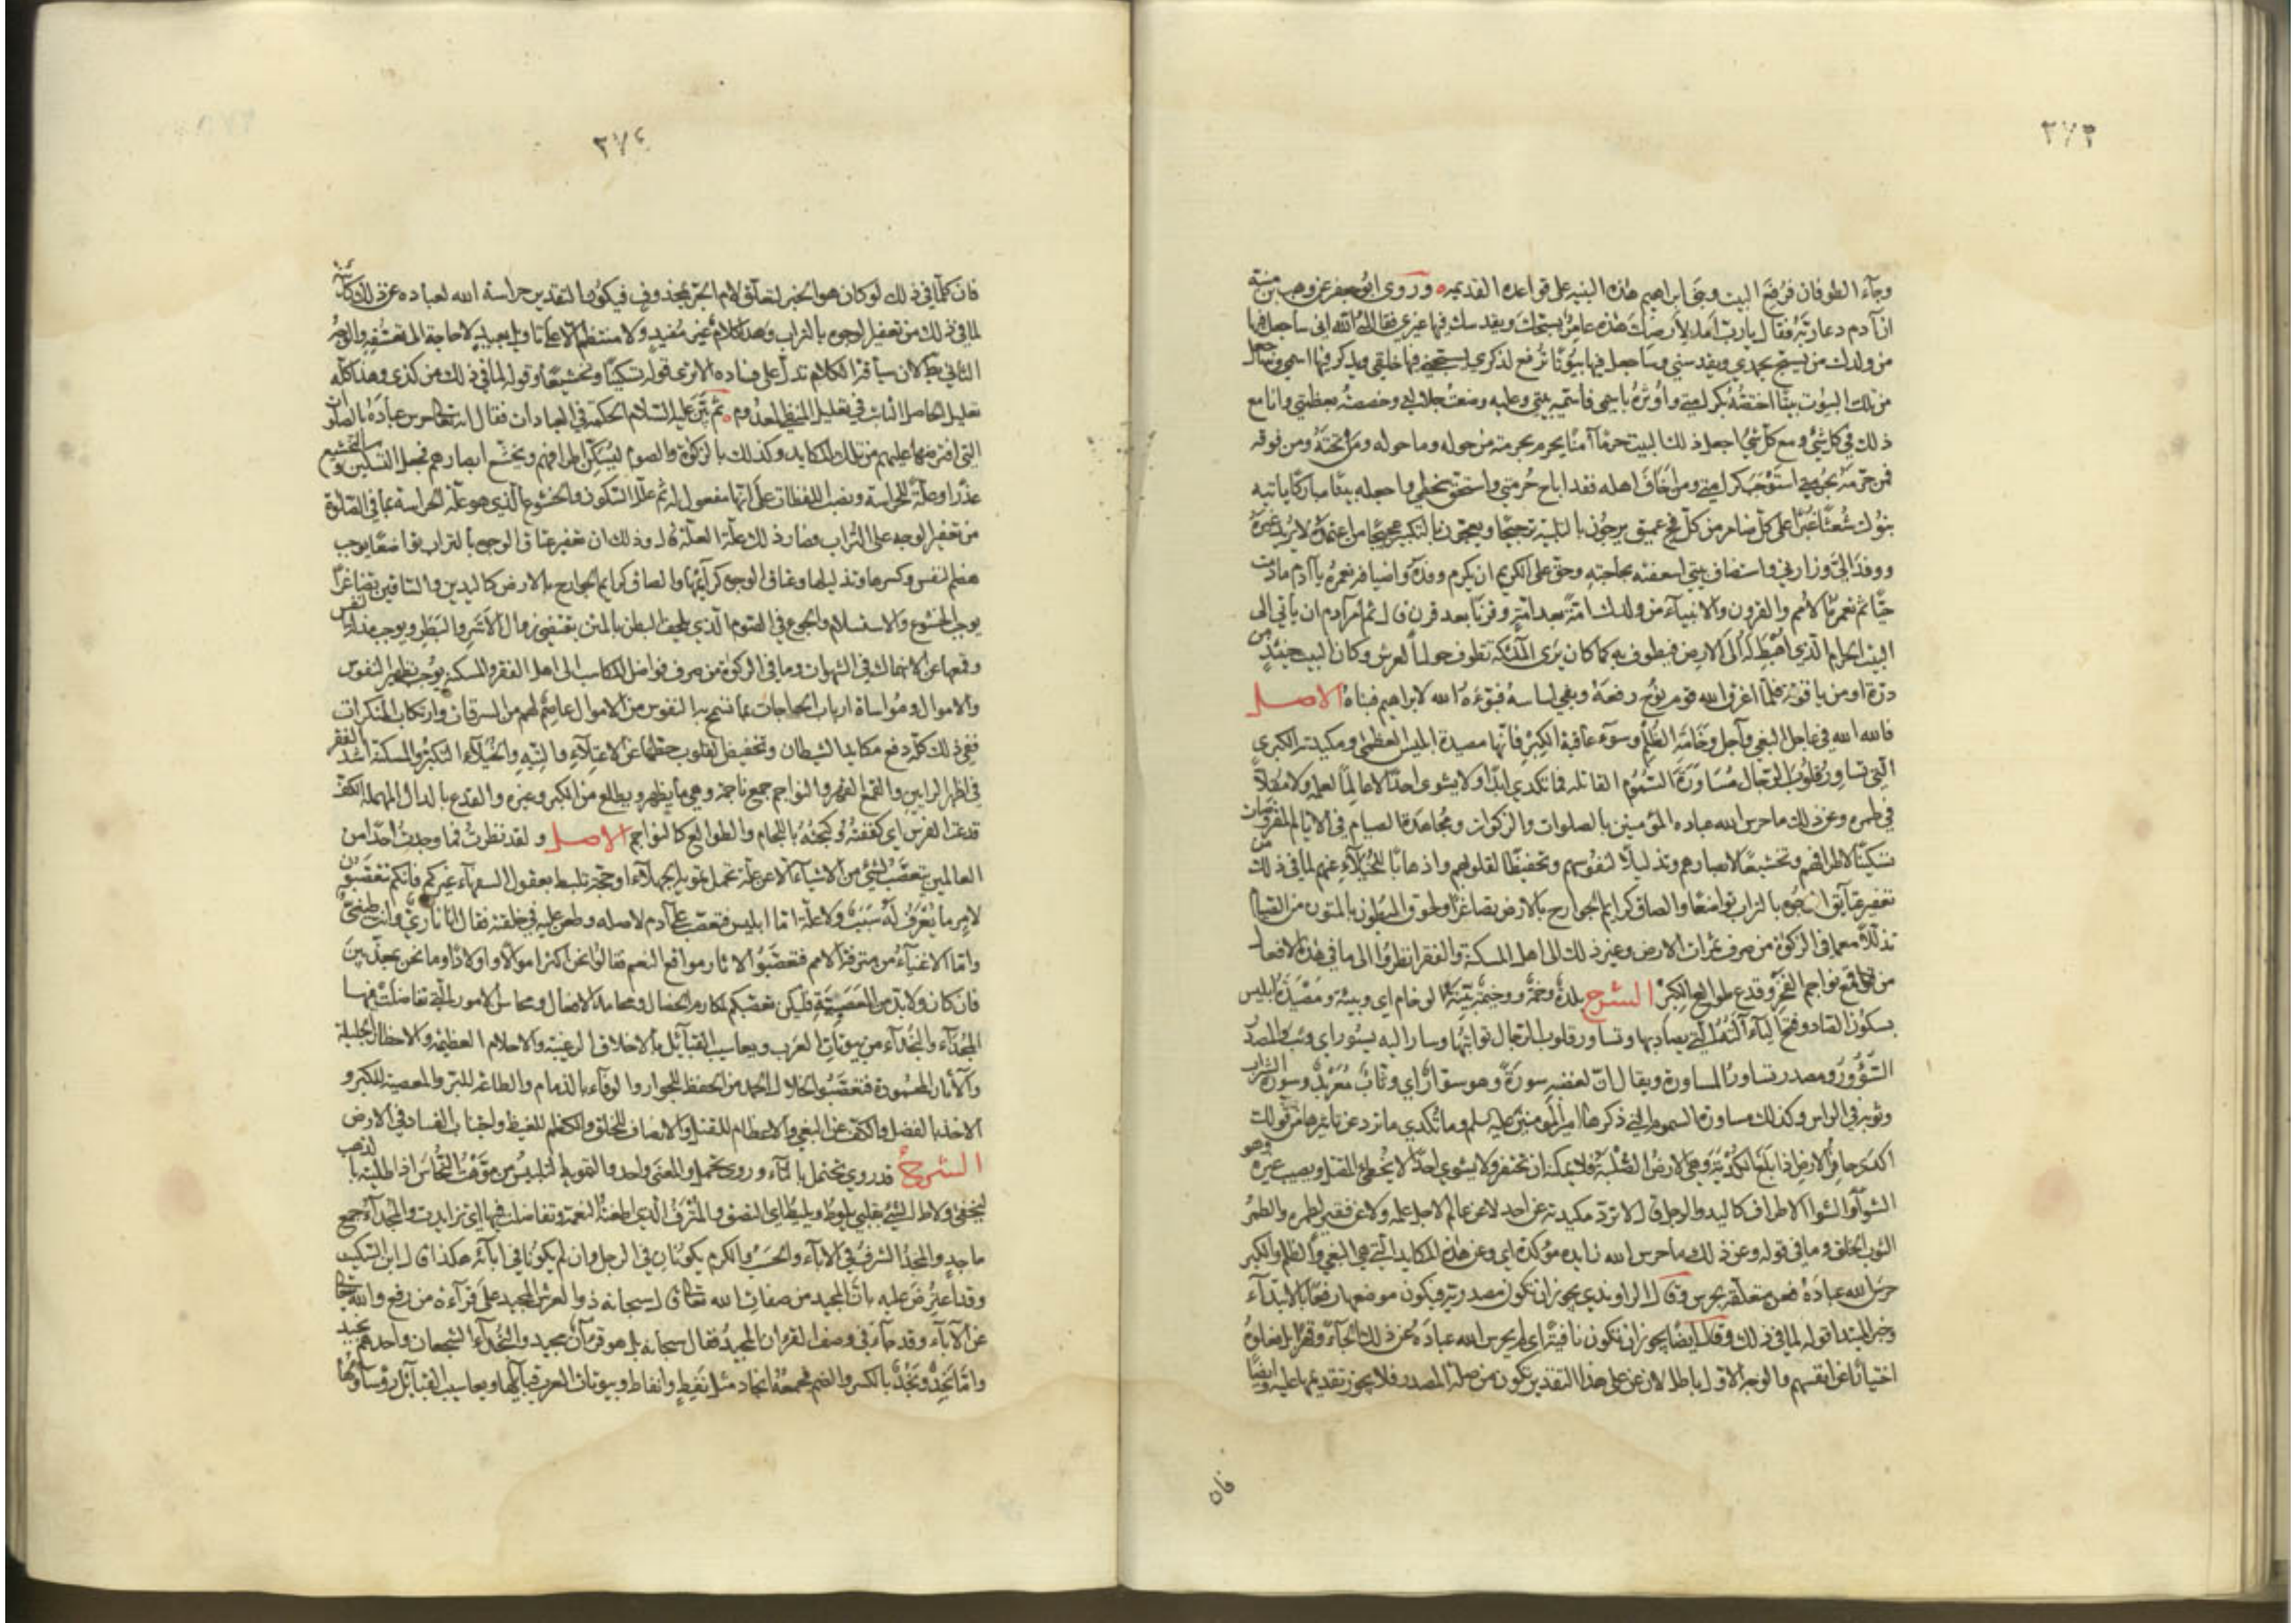 ٢٧٣
وجاء الطوفان فرفع البيت وبنى ابراهيم هذه البنية على قواعده القديمة وروى ابو جعفر عن وهب بن منبه
ان آدم دعا ربه فقال يا رب اما لارضك هذه عامر يسبحك ويقدسك فيها غيري فقال له الله اني سأجعل فيها
من ولدك من يسبح بحمدي ويقدسني وسأجعل فيها بيوتا ترفع لذكري يسبحني فيها خلقي ويذكر فيها اسمي وسأجعل
من تلك البيوت بيتا اختصه بكرامتي واوثره باسمي فأسميه بيتي وعليه وضعت جلالتي وخصصته بعظمتي وانا مع
ذلك في كل شئ ومع كل شئ اجعل ذلك البيت حرما آمنا يحرم بحرمته من حوله وما حوله ومن تحته ومن فوقه
فمن حرمه بحرمتي استوجب كرامتي ومن اخاف اهله فقد اباح حرمتي واستحق سخطي واجعله بيتا مباركا ياتيه
بنوك شعثا غبرا على كل ضامر من كل فج عميق يرجون بالتلبية ترجيجا ويعجون بالتكبير عجيجا من اعتمده لا يريد غيره
ووفد الي وزارني واستضاف بيتي اسعفته بحاجته وحق على الكريم ان يكرم وفده واضيافه تعمره يا آدم ما دمت
حيا ثم تعمره الامم والقرون والانبياء من ولدك امة بعد امة وقرنا بعد قرن قال ثم امر آدم ان ياتي الى
البيت الحرام الذي اهبط له الى الارض فيطوف به كما كان يرى الملئكة تطوف حول العرش وكان البيت حينئذ من
درة او من ياقوتة فلما اغرق الله قوم نوح رفعه وبقي اساسه فبوءه الله لابراهيم فبناه الاصل
فالله الله في عاجل البغي وآجل وخامة الظلم وسوء عاقبة الكبر فانها مصيدة ابليس العظمى ومكيدته الكبرى
التي تساور قلوب الرجال مساورة السموم القاتلة فما تكدي ابدا ولا تشوي احدا لا عالما لعلمه ولا مقلا
في طمره وعن ذلك ما حرس الله عباده المؤمنين بالصلوات والزكوات ومجاهدة الصيام في الايام المفروضات
تسكينا لاطرافهم وتخشيعا لابصارهم وتذليلا لنفوسهم وتخفيضا لقلوبهم واذهابا للخيلاء عنهم لما في ذلك من
تعفير عتائق الوجوه بالتراب تواضعا والصاق كرائم الجوارح بالارض تصاغرا ولحوق البطون بالمتون من الصيام
تذللا مع ما في الزكوة من صرف ثمرات الارض وغير ذلك الى اهل المسكنة والفقر انظروا الى ما في هذه الافعال
من قمع نواجم الفخر وقدع طوالع الكبر الشرح بلدة وخمة ووخيمة بينة الوخام اي وبيئة ومصيدة ابليس
بسكون الصاد وفتح الياء آلته التي يصاد بها وتساور قلوب الرجال تواثبها وسار اليه يسور اي وثب والمصدر
السؤور ومصدر تساور المساورة ويقال ان لغضبه سورة وهو سوار اي وثاب معربد وسورة الشراب
وثوبه في الراس وكذلك مساورة السموم التي ذكرها امير المؤمنين عليه السلم وما تكدي ما ترد عن تاثيرها من قولك
اكدى حافر الارض اذا بلغ الكدية وهي الارض الصلبة فلا يمكنه ان يحفر ولا يشوي احدا لا يخطئ المقتل ويصيب غيره وهو
الشوا والشوا الاطراف كاليد والرجل قال لا ترد مكيدته عن احد لا عن عالم لاجل علمه ولا عن فقير لطمره والطمر
الثوب الخلق وما في قوله وعن ذلك ما حرس الله زائدة مؤكدة اي وعن هذه المكايد التي هي البغي والظلم والكبر
حرس الله عباده فعن متعلقة بحرس وقال الراوندي يجوز ان تكون مصدرية فيكون موضعها رفعا بالابتداء
وخبر المبتدا قوله لما في ذلك وقال ايضا يجوز ان تكون نافية اي لم يحرس الله عباده عن ذلك الجاء وقهرا بل فعلوه
اختيارا من انفسهم والوجه الاول باطل لان عن على هذا التقدير تكون من صلة المصدر فلا يجوز تقديمها عليه وايضا
فان
٢٧٤
فان كلما في ذلك لو كان هو الخبر لتعلق لام الجر بمحذوف فيكون التقدير حراسة الله لعباده عن ذلك كائنة
لما في ذلك من تعفير الوجوه بالتراب وهذا كلام غير مفيد ولا منتظم الا على تاويل بعيد لا حاجة الى تعسفه والوجه
الثاني باطل لان سياقة الكلام تدل على فساده الا ترى قوله تسكينا وتخشيعا وقوله لما في ذلك من كذا وهذا كله
تعليل الحاصل الثابت لا تعليل المنفي المعدوم ثم بين عليه السلام الحكمة في العبادات فقال انه تعالى حرس عباده بالصلوات
التي افترضها عليهم من تلك المكايد وكذلك بالزكوة والصوم ليسكن اطرافهم ويخشع ابصارهم فجعل التسكين والتخشيع
عذرا وعلة للحراسة ونصب اللفظات على انها مفعول له ثم علل السكون والخشوع الذي هو علة الحراسة بما في الصلوة
من تعفير الوجه على التراب فصار ذلك علة العلة قال وذلك ان تعفير عتاق الوجوه بالتراب تواضعا يوجب
هضم النفس وكسرها وتذليلها وعتاق الوجوه كرائمها والصاق كرائم الجوارح بالارض كاليدين والساقين تصاغرا
يوجب الخشوع والاستسلام والجوع في الصوم الذي يلحق البطن بالمتن يقتضي زوال الاشر والبطر ويوجب مذلة النفس
وقمعها عن الانهماك في الشهوات وما في الزكوة من صرف فواضل المكاسب الى اهل الفقر والمسكنة يوجب تطهير النفوس
والاموال ومواساة ارباب الحاجات بما تسمح به النفوس من الاموال عاصم لهم من السرقات وارتكاب المنكرات
ففي ذلك كله دفع مكايد الشيطان وتخفيض القلوب حطها عن الاعتلاء والتيه والخيلاء التكبر والمسكنة اشد الفقر
في اظهر الرايين والقمع القهر والنواجم جمع ناجمة وهي ما يظهر ويطلع من الكبر وغيره والقدع بالدال المهملة الكف
قدعت الفرس اي كففته وكبحته باللجام والطوالع كالنواجم الاصل ولقد نظرت فما وجدت احدا من
العالمين يتعصب لشئ من الاشياء الا عن علة تحتمل تمويه الجهلاء او حجة تليط بعقول السفهاء غيركم فانكم تتعصبون
لامر ما يعرف له سبب ولا علة اما ابليس فتعصب على آدم لاصله وطعن عليه في خلقته فقال انا ناري وانت طيني
واما الاغنياء من مترفة الامم فتعصبوا لاثار مواقع النعم فقالوا نحن اكثر اموالا واولادا وما نحن بمعذبين
فان كان ولا بد من العصبية فليكن تعصبكم لمكارم الخصال ومحامد الافعال ومحاسن الامور التي تفاضلت فيها
المجداء والنجداء من بيوتات العرب ويعاسيب القبائل بالاخلاق الرغيبة والاحلام العظيمة والاخطار الجليلة
والآثار المحمودة فتعصبوا لخلال الحمد من الحفظ للجوار والوفاء بالذمام والطاعة للبر والمعصية للكبر و
الاخذ بالفضل والكف عن البغي والاعظام للقتل والانصاف للخلق والكظم للغيظ واجتناب الفساد في الارض
الشرح قد روي تحتمل بالتاء وروي تحمل والمعنى واحد والتمويه التلبيس من موهت النحاس اذا طليته بالذهب
ليخفى ولاط الشئ بقلبي يلوط ويليط اي التصق والمترف الذي اطغته النعمة وتفاضلت فيها اي تزايدت والمجداء جمع
ماجد والمجد الشرف في الاباء والحسب والكرم يكونان في الرجل وان لم يكونا في آبائه هكذا قال ابن السكيت
وقد اعترض عليه بان المجيد من صفات الله تعالى قال سبحانه ذو العرش المجيد على قراءة من رفع والله تعالى
عن الآباء وقد جاء في وصف القران المجيد فقال سبحانه بل هو قرآن مجيد والنجداء الشجعان واحدهم نجيد
واما نجد ونجد بالكسر والضم فجمعه انجاد مثل يقظ وايقاظ وبيوتات العرب قبائلها ويعاسيب القبائل رؤساؤها